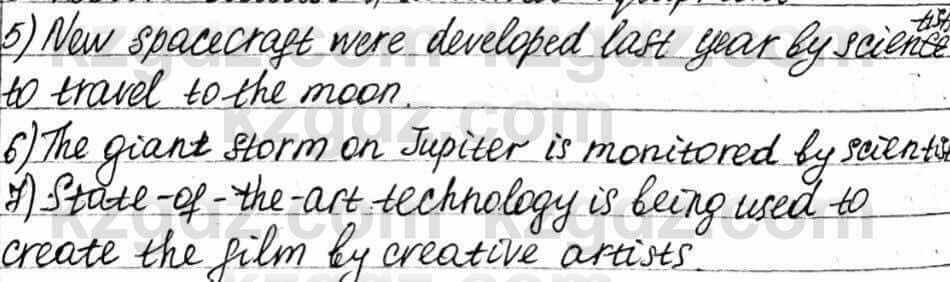 5) New spacecraft were developed last year by scientists
to travel to the moon.
6) The giant storm on Jupiter is monitored by scientis
7) State-of-the-art technology is being used to
create the film by creative artists.
kzgdz.com